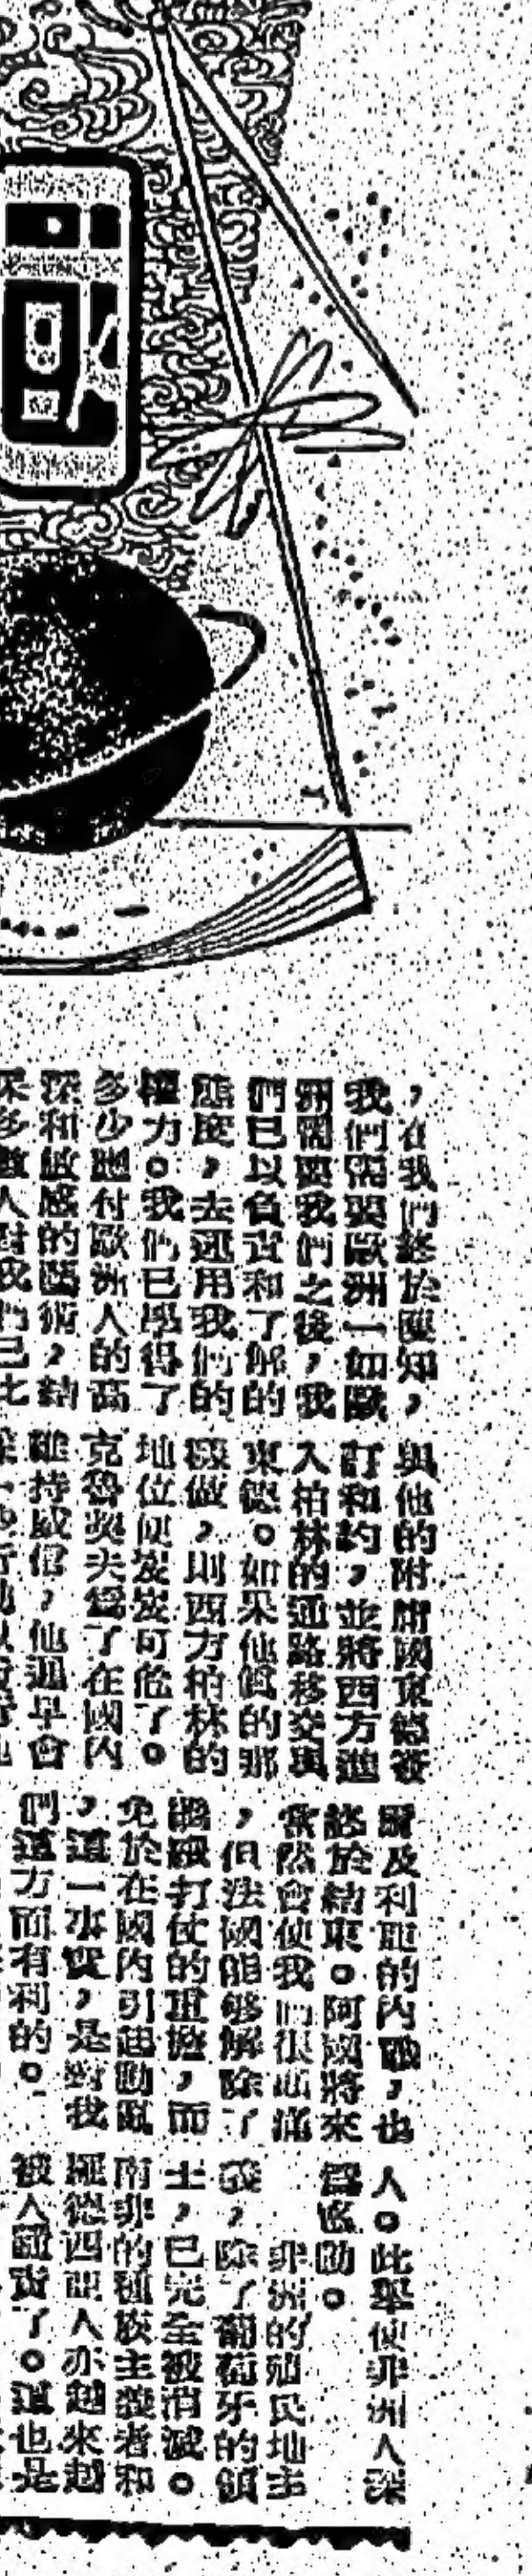 ，在我們終於匯知，
我們需要歐洲一如歐
洲需要我們之後，我
們已以負責和了解的
態度，去运用我們的
權力。我們已學得了
多少應付歐洲人的高
深和敏感的藝術，結
與他的附庸國東德簽
訂和約，並將西方進
入柏林的通路移交與
東德。如果他真的那
樣做，則西方柏林的
地位便岌岌可危了。
克魯契夫為了在國內
維持威信，他遲早會
爾及利亞的內戰，也
終於結束。阿國將來
當然會使我們很頭痛
，但法國能够解除了
繼續打仗的重擔，而
免於在國內引起動亂
，這一事實，是對我
們這方面有利的。
人。此舉使非洲人深
為感動。
非洲的殖民地主
義，除了葡萄牙的領
土，已完全被消滅。
南非的種族主義者和
羅德西亞人亦越來越
被人厭棄了。這也是